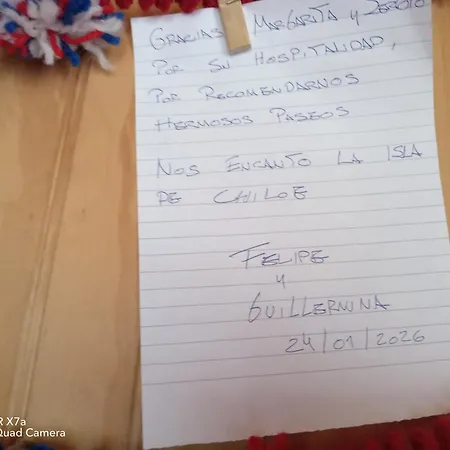 GRACIAS MARGARITA Y
POR SU HOSPITALIDAD,
POR RECOMENDARNOS
HERMOSOS PASEOS
NOS ENCANTO LA ISLA
DE CHILOE
FELIPE
y
GUILLERMINA
24/01/2026
R X7a
Quad Camera